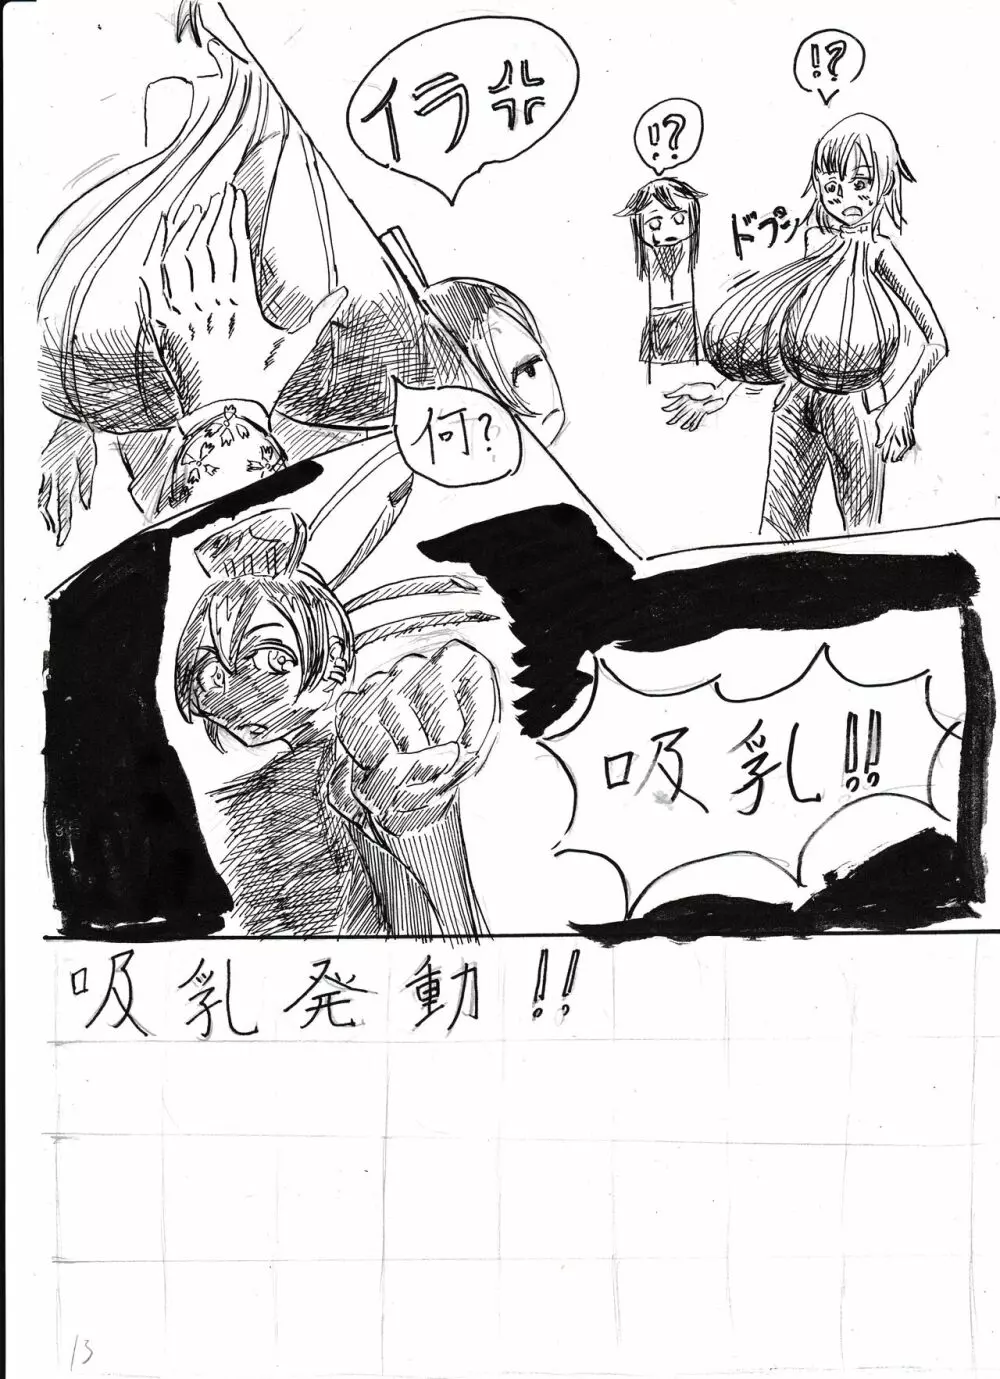 !?
!?
ドプン
イラ
何?
吸乳!!
吸乳発動!!
13